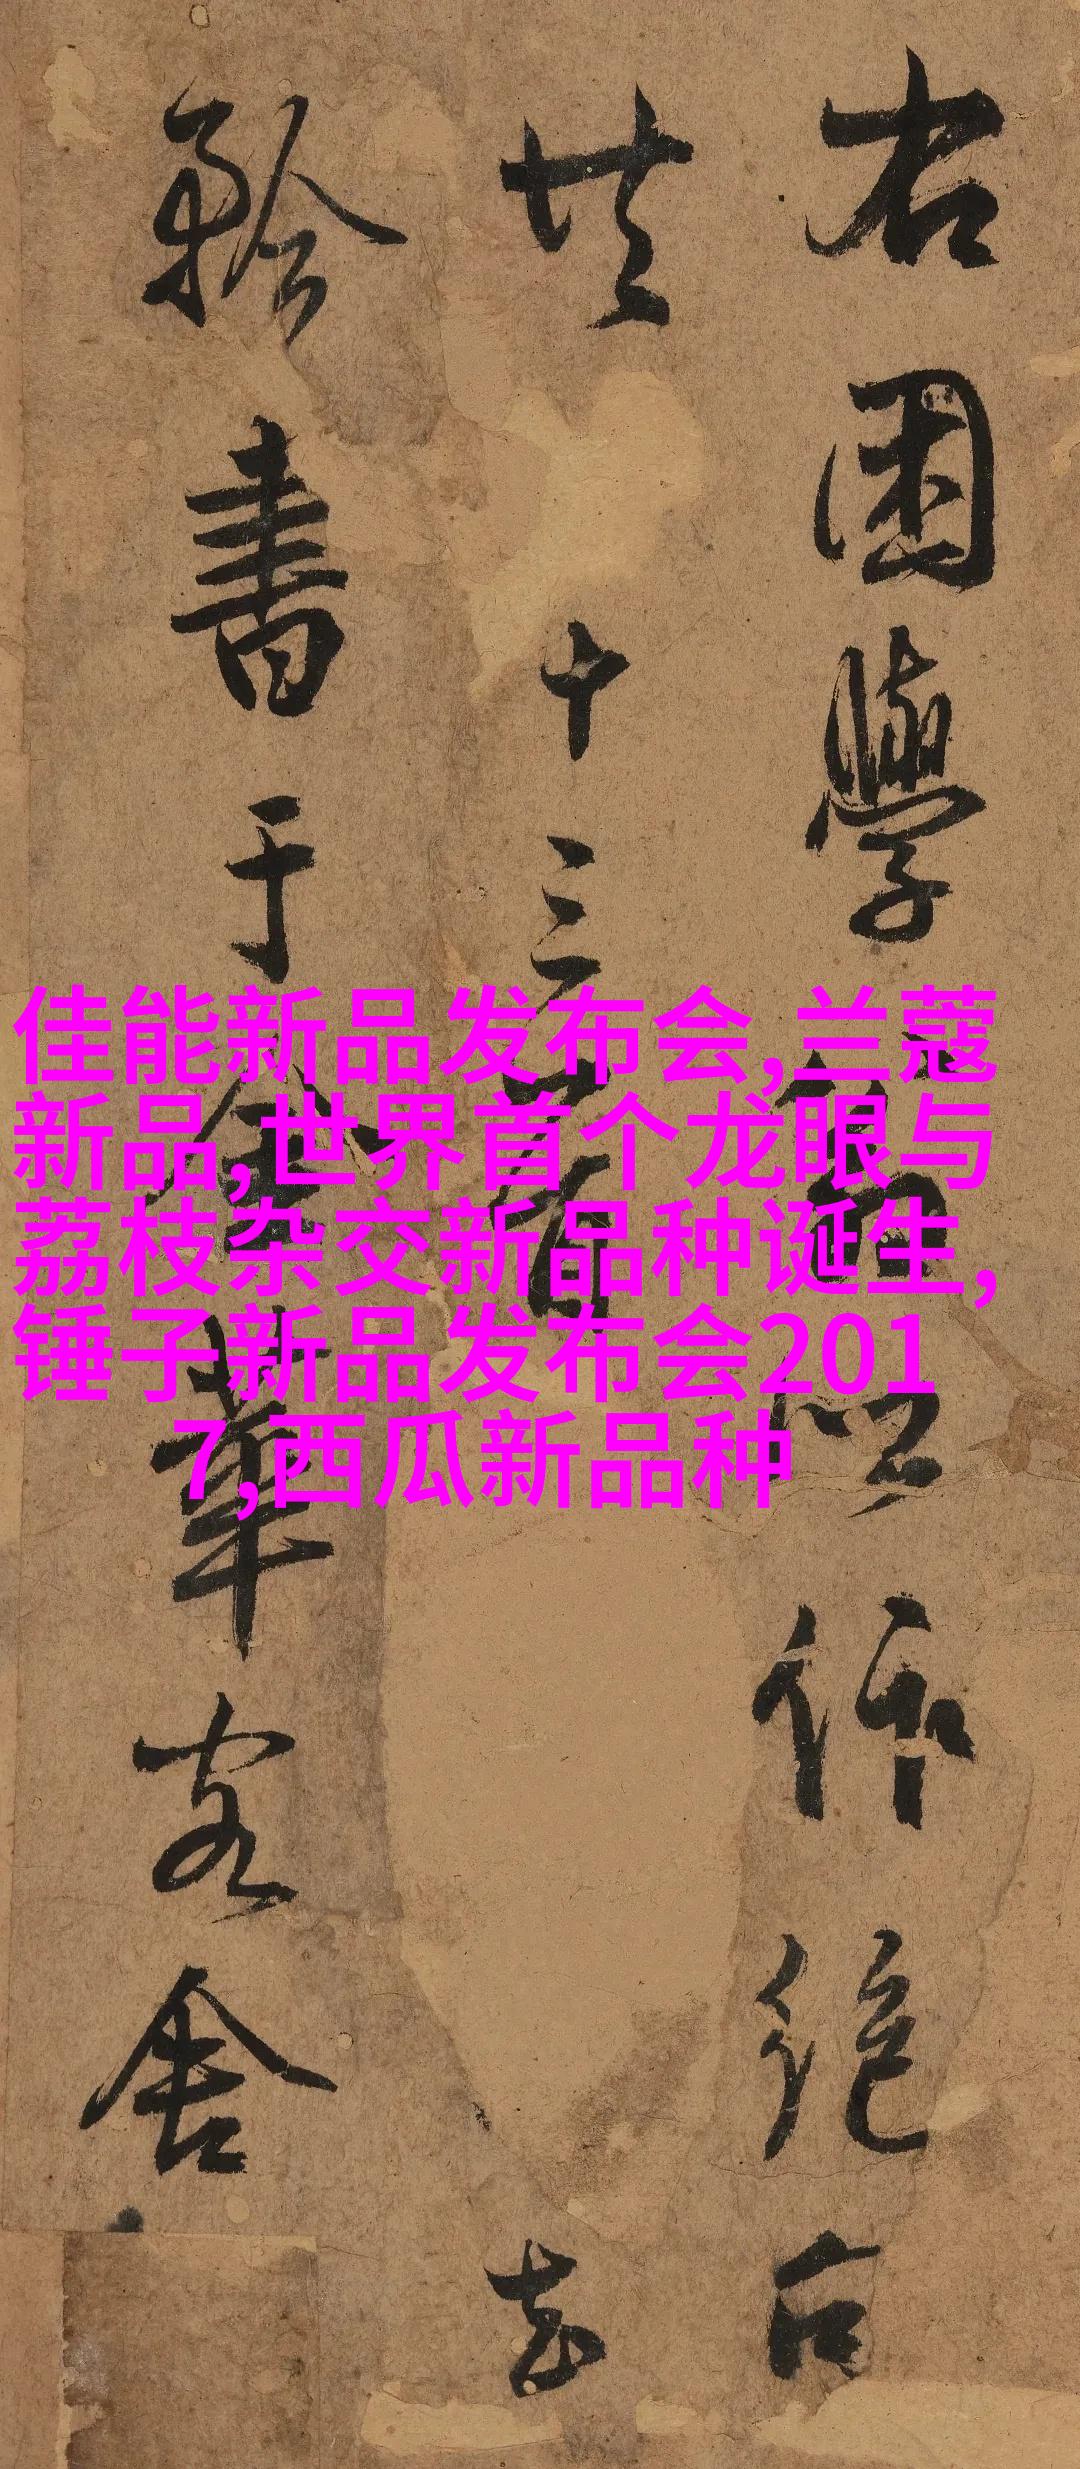 右困學作絕句
共十三首去
矜書于金華客舍
佳能新品发布会,兰蔻
新品,世界首个龙眼与
荔枝杂交新品种诞生,
锤子新品发布会201
7,西瓜新品种